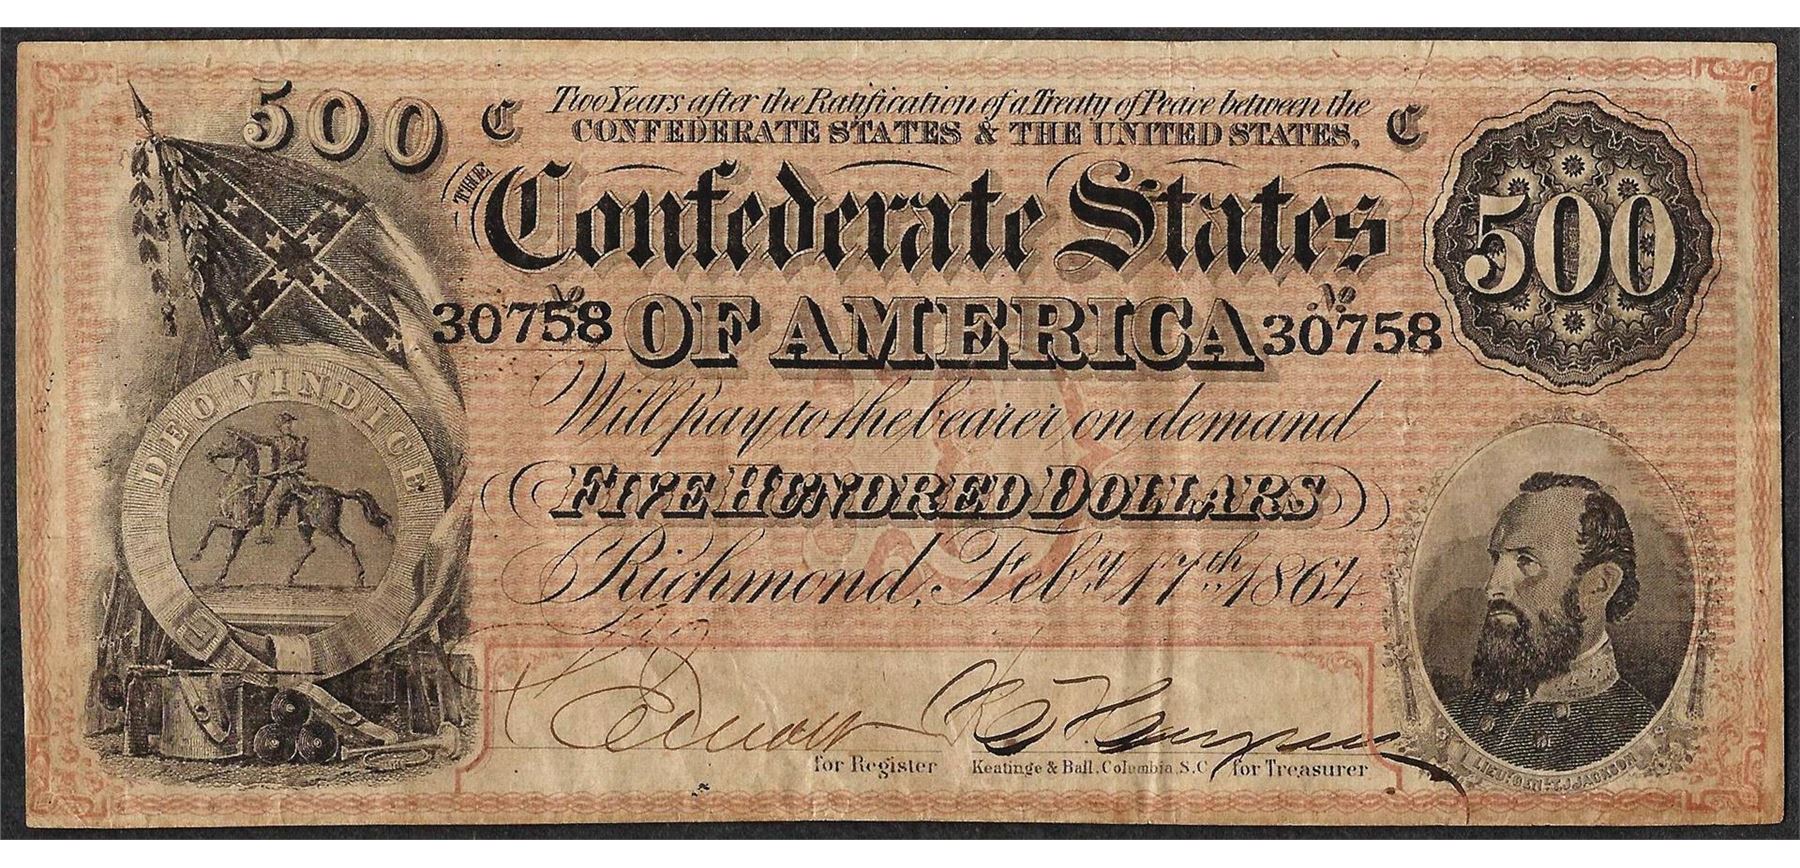 500 C Two Years after the Ratification of a Treaty of Peace between the C
CONFEDERATE STATES & THE UNITED STATES.
500
THE Confederate States
No 30758 OF AMERICA No 30758
Will pay to the bearer on demand
FIVE HUNDRED DOLLARS
Richmond, Feby 17th 1864
DEO VINDICE
for Register Keatinge & Ball, Columbia, S.C. for Treasurer
LIEUT. GEN. T.J. JACKSON